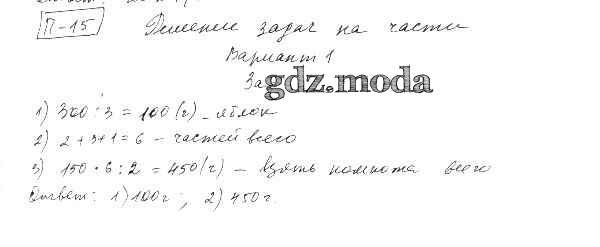 П-15 Решение задач на части
Вариант 1
За
gdz.moda
1) 300 : 3 = 100 (г) - яблок
2) 2 + 3 + 1 = 6 - частей всего
3) 150 · 6 : 2 = 450 (г) - взять компота всего
Ответ: 1) 100 г; 2) 450 г.